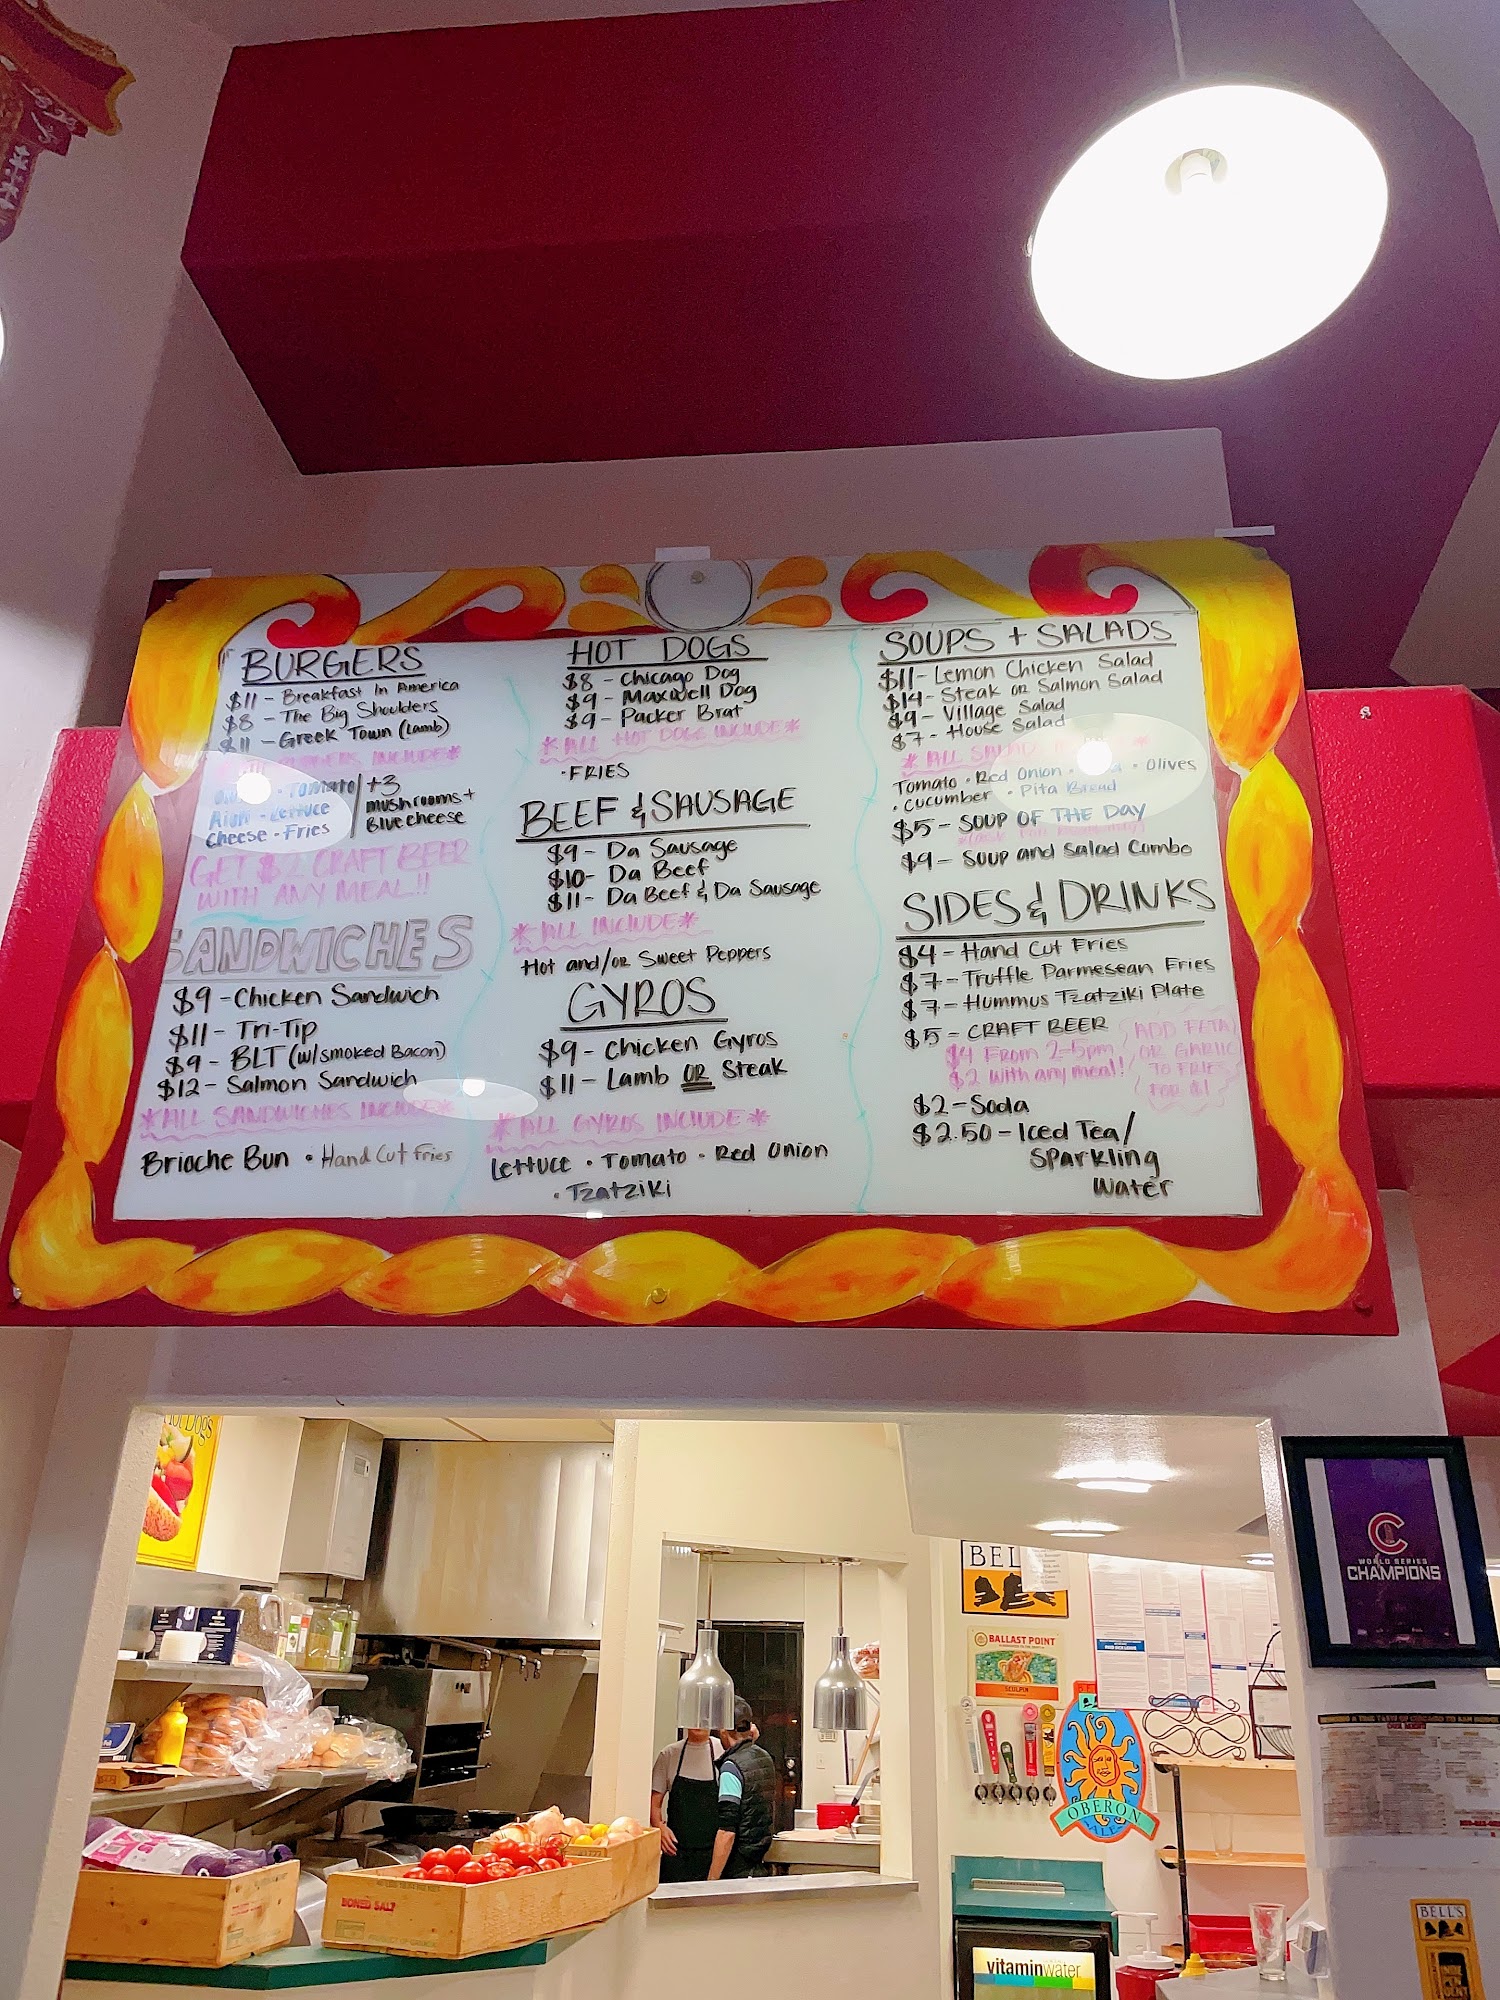 BURGERS
$11 - Breakfast In America
$8 - The Big Shoulders
$11 - Greek Town (Lamb)
INCLUDE*
Tomato
Aioli · Lettuce
Cheese · Fries
+3
mushrooms +
Blue cheese
GET $2 CRAFT BEER
WITH ANY MEAL!!
SANDWICHES
$9 - Chicken Sandwich
$11 - Tri-Tip
$9 - BLT (w/smoked Bacon)
$12 - Salmon Sandwich
*ALL SANDWICHES INCLUDE*
Brioche Bun · Hand Cut Fries
HOT DOGS
$8 - Chicago Dog
$9 - Maxwell Dog
$9 - Packer Brat
*ALL HOT DOGS INCLUDE*
·FRIES
BEEF & SAUSAGE
$9 - Da Sausage
$10 - Da Beef
$11 - Da Beef & Da Sausage
*ALL INCLUDE*
Hot and/or Sweet Peppers
GYROS
$9 - Chicken Gyros
$11 - Lamb OR Steak
*ALL GYROS INCLUDE*
Lettuce · Tomato · Red Onion
· Tzatziki
SOUPS + SALADS
$11 - Lemon Chicken Salad
$14 - Steak or Salmon Salad
$9 - Village Salad
$7 - House Salad
*ALL
Tomato · Red Onion · · Olives
· Cucumber · Pita Bread
$5 - SOUP OF THE DAY
$9 - Soup and Salad Combo
SIDES & DRINKS
$4 - Hand Cut Fries
$7 - Truffle Parmesean Fries
$7 - Hummus Tzatziki Plate
$5 - CRAFT BEER
$4 From 2-5pm
$2 with any meal!
ADD FETA
OR GARLIC
TO FRIES
FOR $1
$2 - Soda
$2.50 - Iced Tea/
Sparkling
Water
Hot Dogs
BEL
BALLAST POINT
SCULPIN
OBERON
ALE
C
WORLD SERIES
CHAMPIONS
vitaminwater
BELL'S